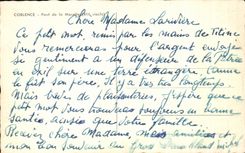 COBLENCE - Pont de la Moselle
Chère Madame Larivière
Ce petit mot, remis par les mains de Titine
vous remerciera pour l'argent envoyé
si gentiment à un défenseur de la Patrie
en exil sur une Terre étrangère, comme
le fut son père, il y a très longtemps.
Mais bien de plaisanteries, J'espère que ce
petit mot vous trouvera toujours en bonne
santé, ainsi que votre famille.
Recevez chère Madame, mes amitiés et
mon bon souvenir au